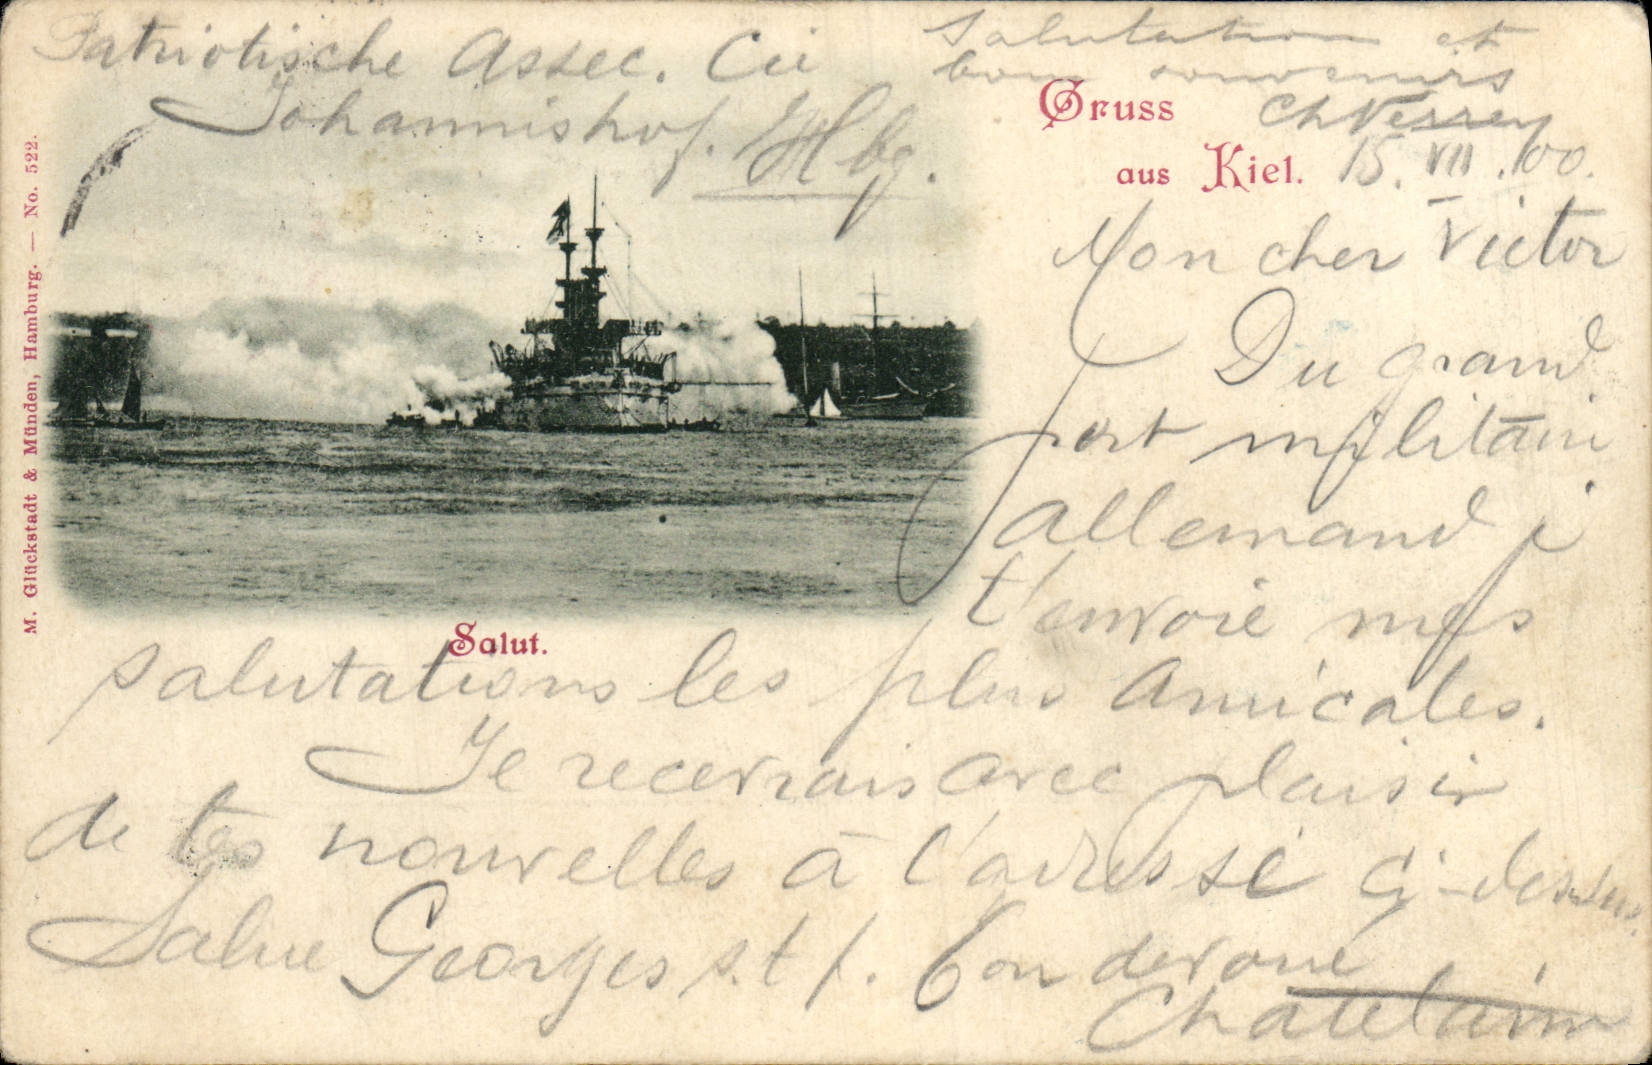 Patriotische Assec. Cie
Johannishof. Hbg.
Salutation et
bons souvenirs
Ch Verrey
Gruss
aus Kiel.
15. VII. 00.
Mon cher Victor
Du grand
port militaire
allemand je
t'envoie mes
salutations les plus amicales.
Je recevrais avec plaisir
de tes nouvelles à l'adresse ci-dessus.
Salue Georges s.t.p. Ton dévoué
Chatelain
Salut.
M. Glückstadt & Münden, Hamburg. — No. 522.